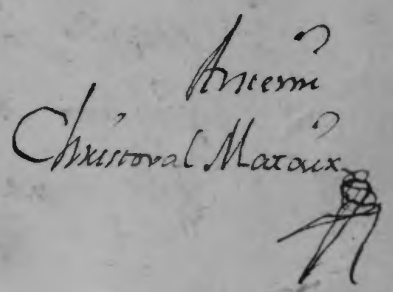 Ante mi
Christoval Maraux